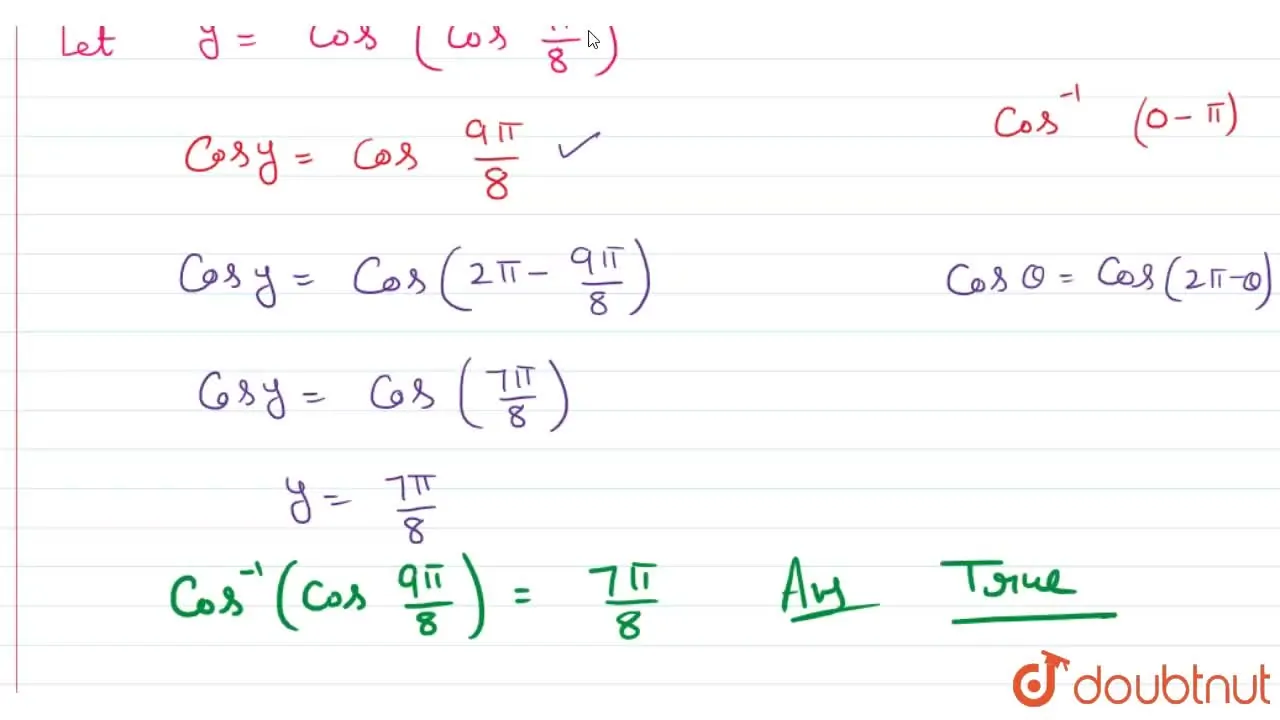 Let y = cos (cos π/8)
Cos y = cos 9π/8 ✓
Cos⁻¹ (0 - π)
Cos y = Cos(2π - 9π/8)
Cos θ = Cos(2π-θ)
Cos y = Cos (7π/8)
y = 7π/8
Cos⁻¹(cos 9π/8) = 7π/8 Ans True
doubtnut